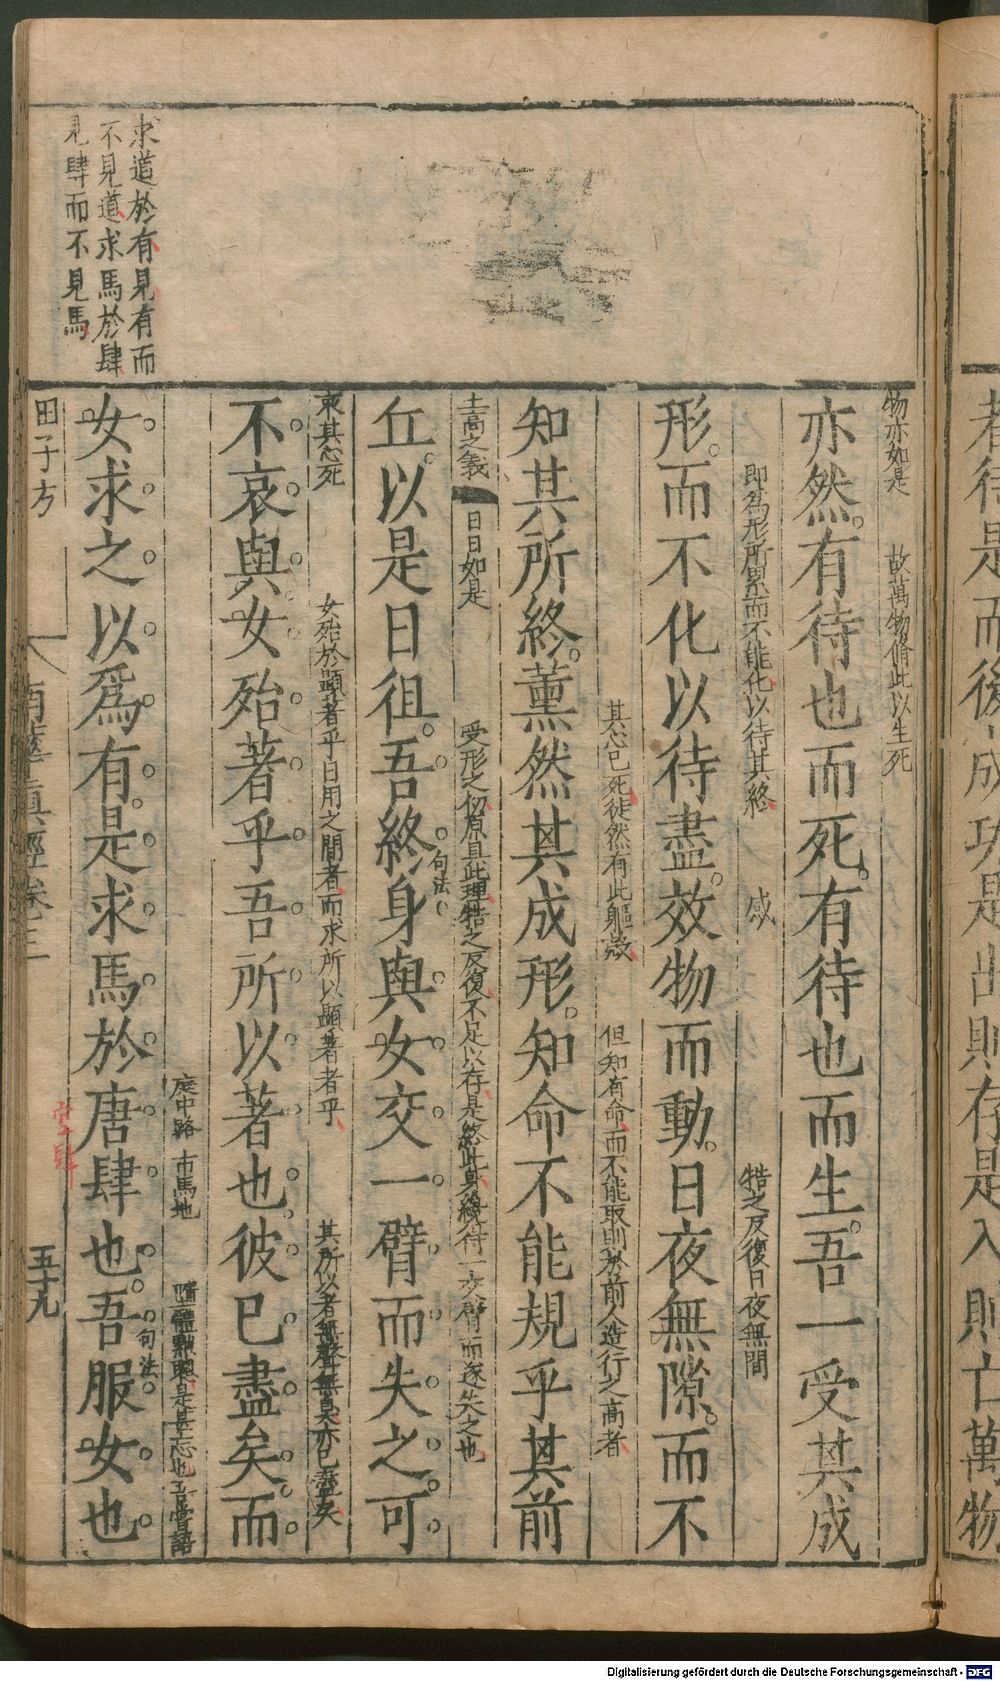 求道於有見有而
不見道求馬於肆
見肆而不見馬
物亦如是 故萬物脩此以生死
亦然有待也而死有待也而生吾一受其成
即為形所累而不能化以待其終 感 牿之反復日夜無間
形而不化以待盡效物而動日夜無隙而不
其心已死徒然有此軀殼 但知有命而不能取則於前人造行之高者
知其所終薰然其成形知命不能規乎其前
土高之義 日日如是 受形之初原具此理牿之反復不足以存是終此身纔待一交臂而遂失之也
丘以是日徂吾終身與女交一臂而失之可
句法
哀其心死 女殆於顯著乎日用之間者而求所以顯著者乎 其所以者無聲無臭亦已盡矣
不哀與女殆著乎吾所以著也彼已盡矣而
庭中路 市馬地 隳體黜聰是甚忘也吾嘗語
女求之以為有是求馬於唐肆也吾服女也
句法
空肆
田子方
南華真經卷三
五十九
若待是而後成功是出則存是入則亡萬物
Digitalisierung gefördert durch die Deutsche Forschungsgemeinschaft - DFG